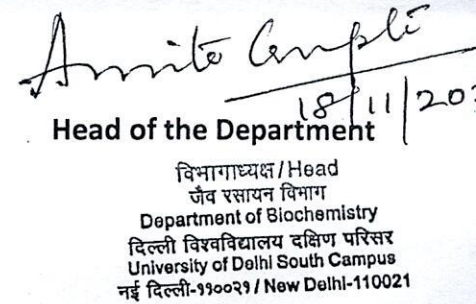 18/11/20
Head of the Department
विभागाध्यक्ष / Head
जैव रसायन विभाग
Department of Biochemistry
दिल्ली विश्वविद्यालय दक्षिण परिसर
University of Delhi South Campus
नई दिल्ली-११००२१ / New Delhi-110021